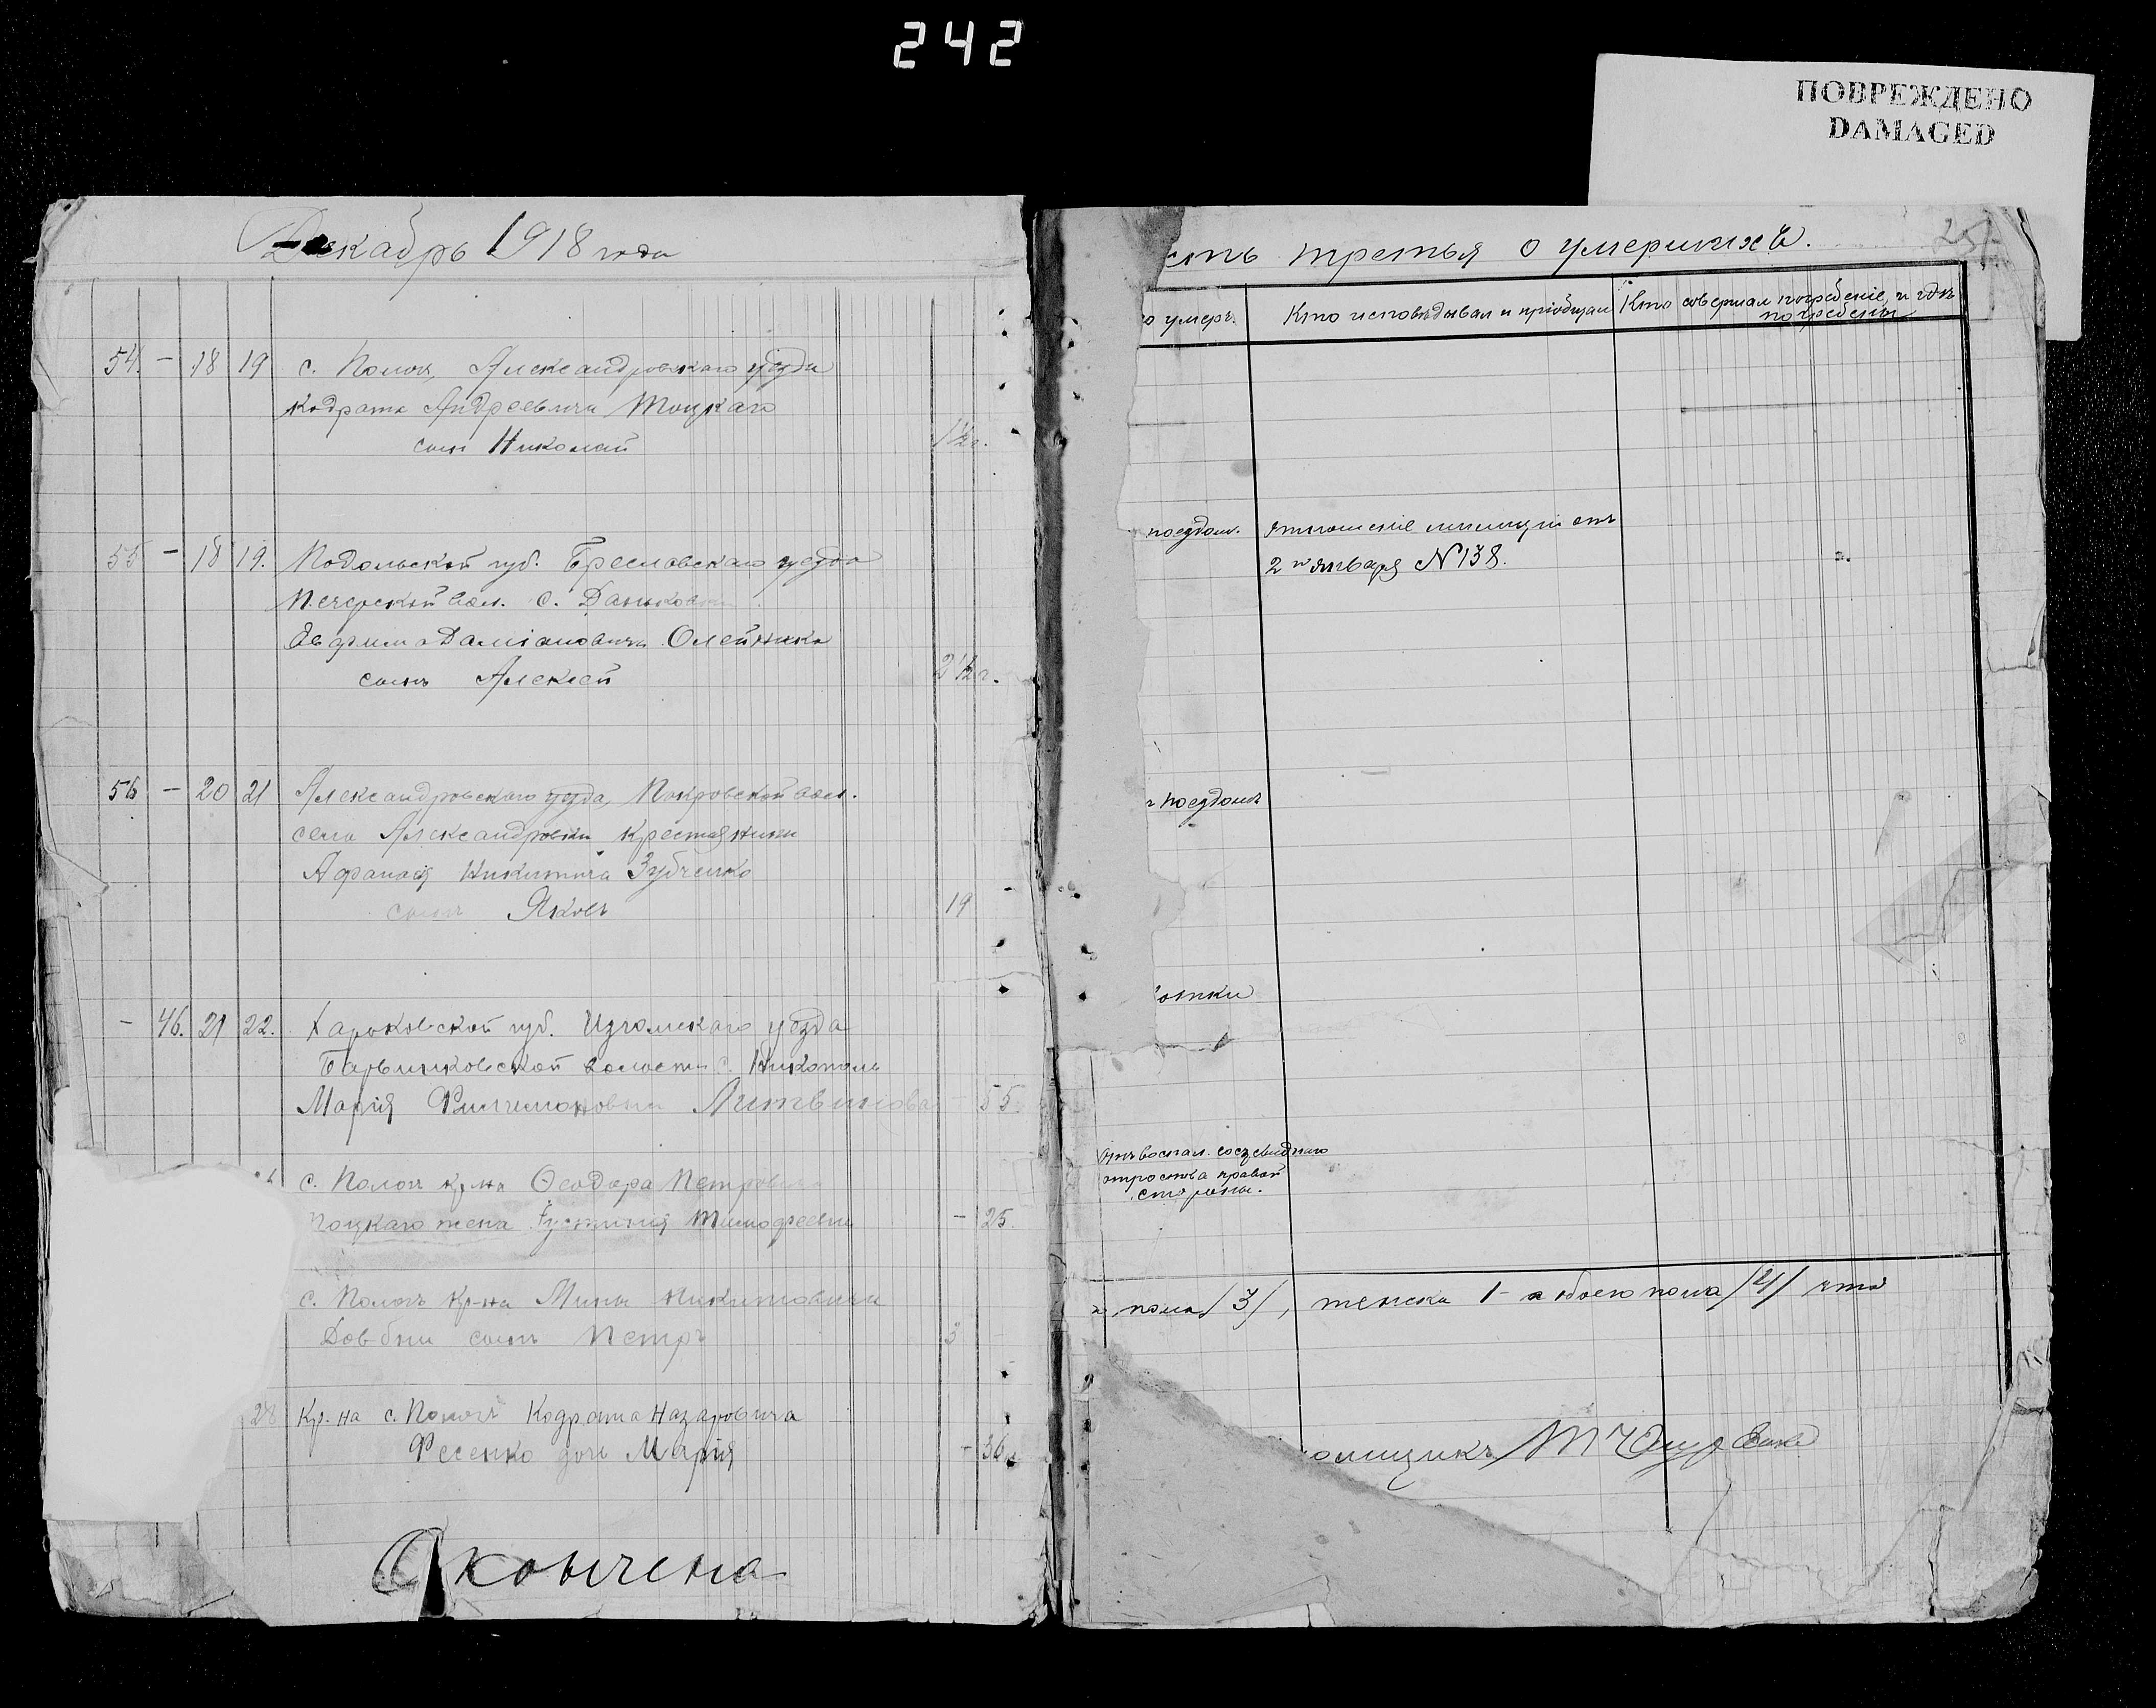 242
ПОВРЕЖДЕНО
DAMAGED
Декабрь 1918 года
54. - 18 19 с. Пологъ, Александровскаго уезда
Кодрата Андреевича Тоцкаго
сын Николай 1½ г.
55 - 18 19. Подольской губ. Бреславскаго уезда
Печерской вол. с. Даньковки
Евфима Даміановича Олейника
сынъ Алексей 2½ г.
56 - 20 21 Александровскаго уезда, Покровской вол.
села Александровки крестьянина
Афанасія Никитича Зубченко
сынъ Яковъ 19
- 46. 21 22. Харьковской губ. Изюмскаго уезда
Барвинковской волости с. Никополь
Марія Филимоновна Литвинова - 55
с. Пологъ кр-на Ѳеодора Петровича
Тоцкаго жена Тимофеевна - 25.
с. Пологъ кр-на Мины Никитовича
Довбни сынъ Петръ 3 -
28 Кр-на с. Пологъ Кодрата Назаровича
Фесенко дочь Марія - 36
Окончена
251
сть третья о умершихъ.
о умеръ. Кто исповѣдывал и пріобщал Кто совершал погребеніе, и гдѣ
погребены
поездом. отношеніе милиціи отъ
2го января №138.
поездомъ
отки
Отъ воспал. сосцевиднаго
отростка правой
стороны.
пола /3/, женска 1 - а обоего пола /4/ что
омщикъ